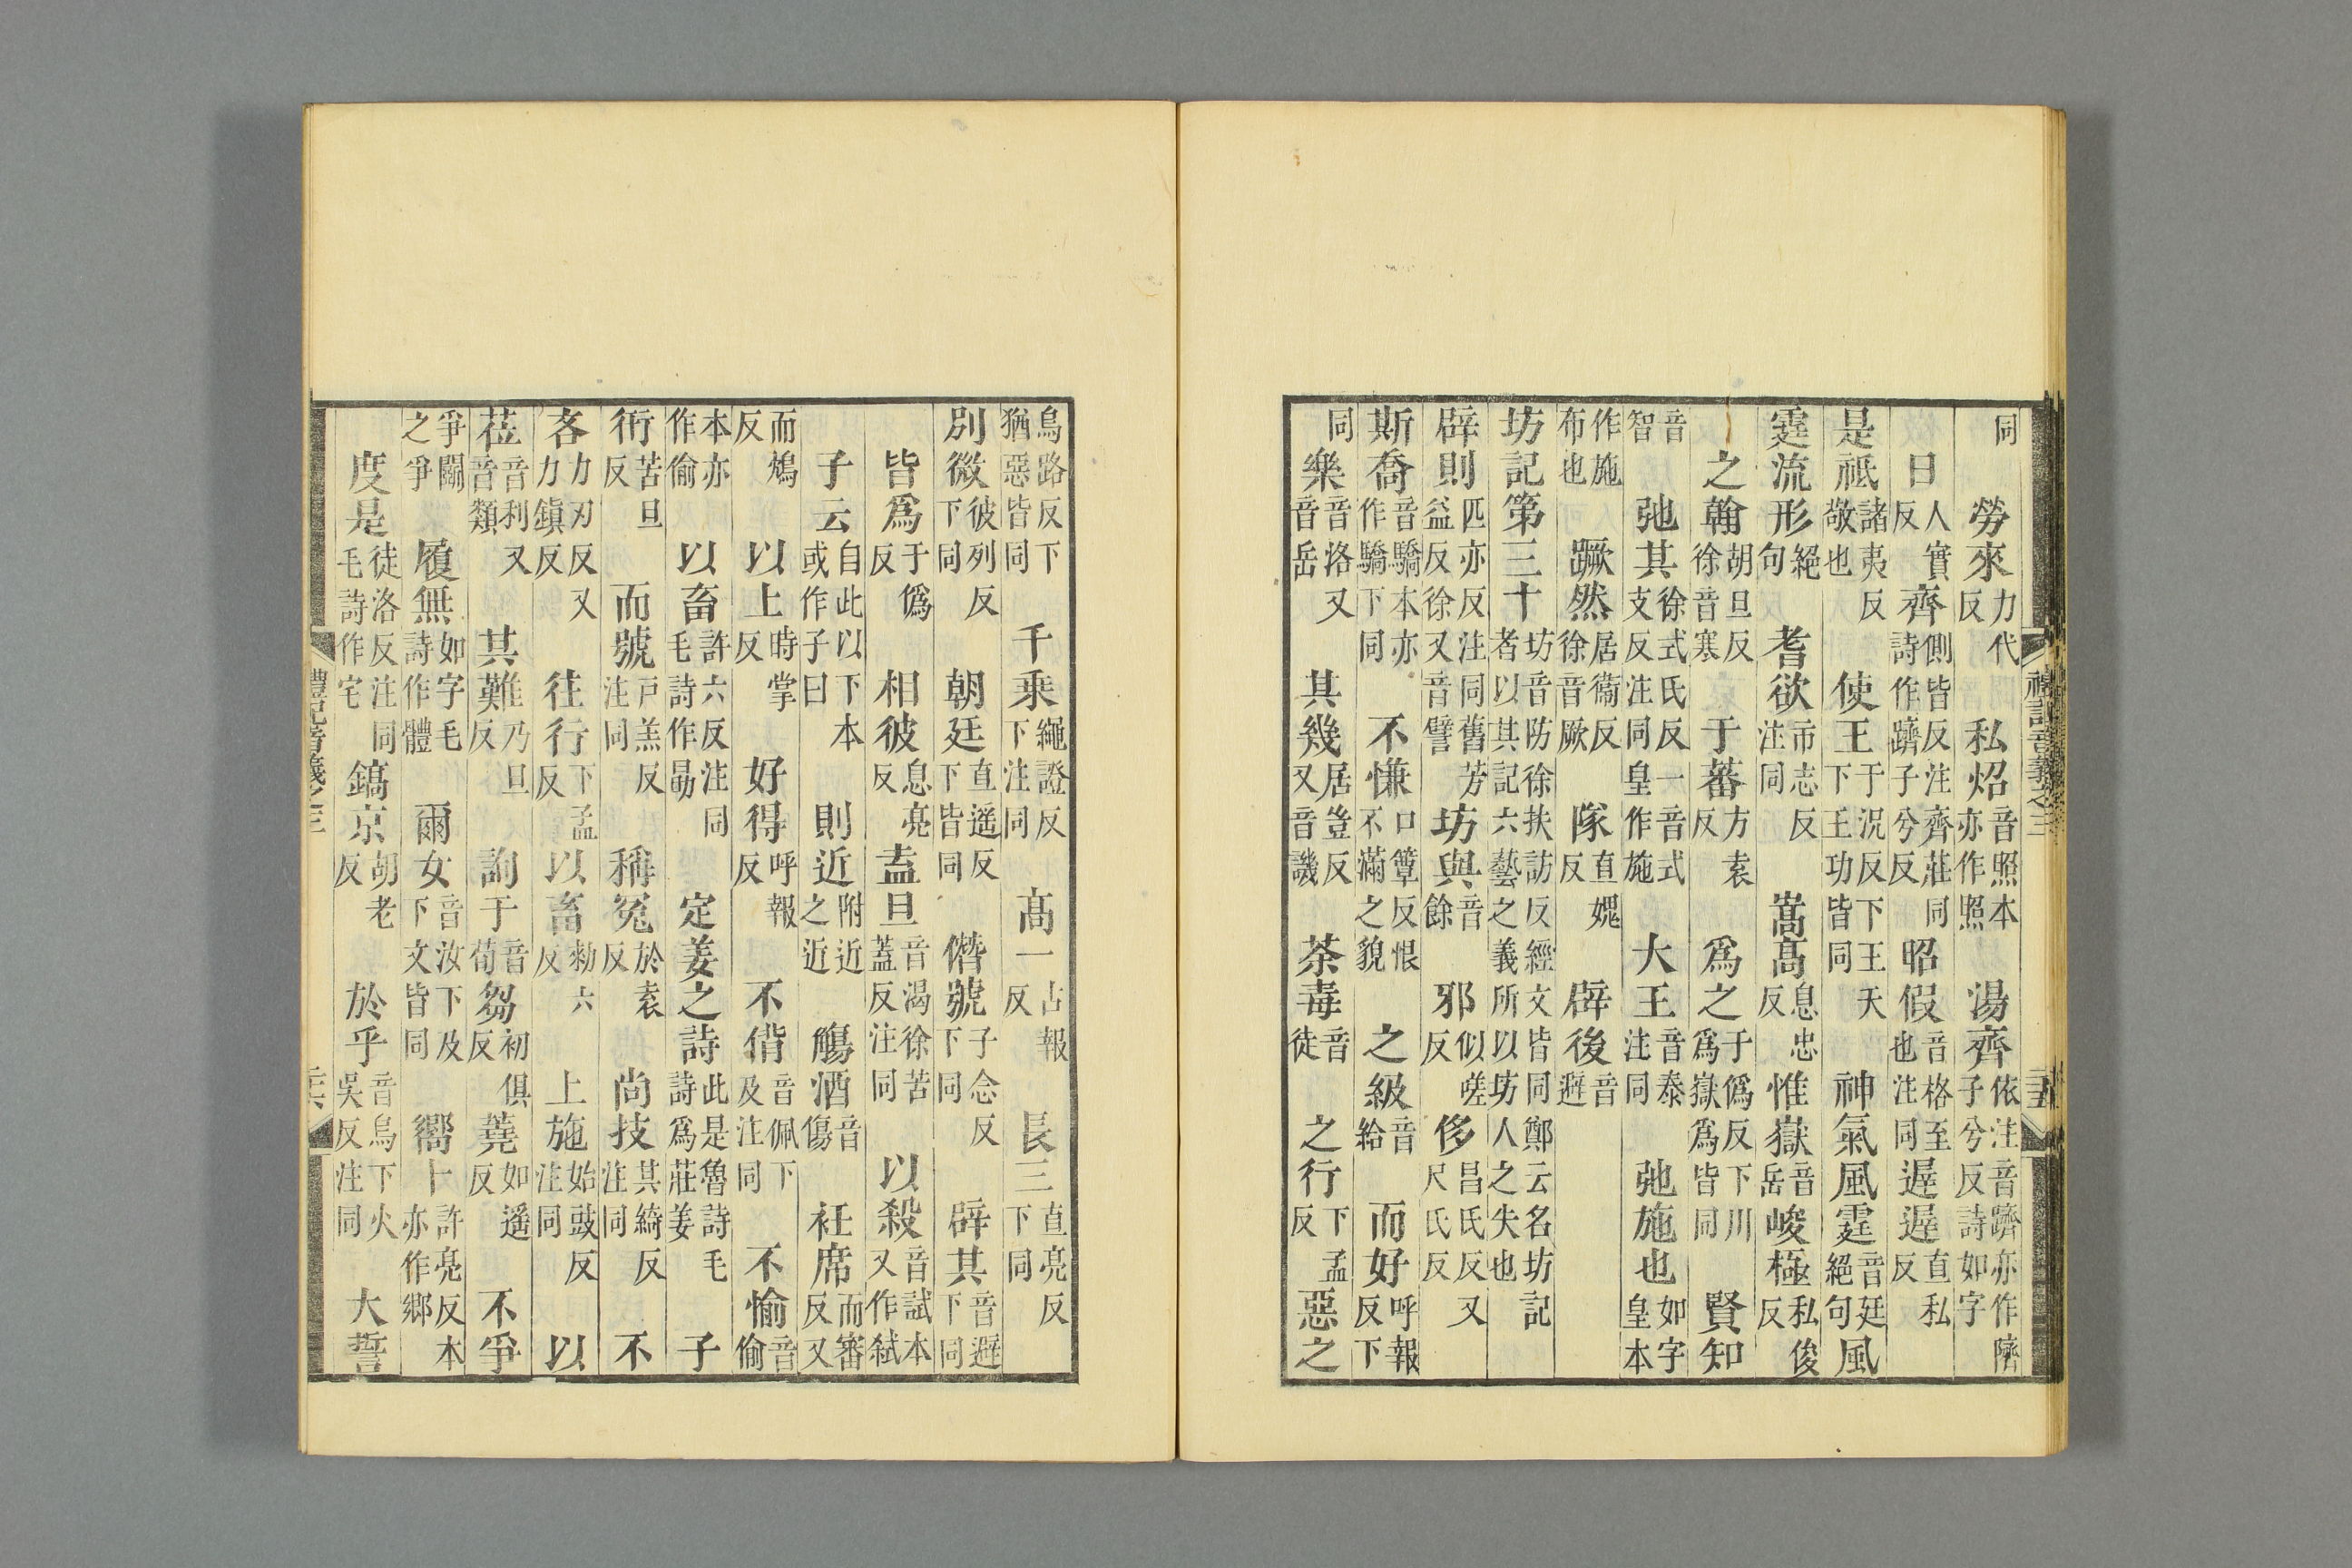 禮記音義之三
二十五
同 勞來力代反 私炤音照本亦作照 湯齊依注音躋亦作隮子兮反詩如字
日人實反 齊側皆反注齊莊同詩作躋子兮反 昭假音格至也注同 遲遲直私反
是祗諸夷反敬也 使王于況反下王天下王功皆同 神氣風霆音廷絕句 風
霆流形絕句 耆欲市志反注同 嵩高息忠反 惟嶽音岳 峻極私俊反
之翰胡旦反徐音寒 于蕃方袁反 爲之于僞反下川爲嶽爲皆同 賢知
音智 弛其徐式氏反一音式支反注同皇作施 大王音泰注同 弛施也如字皇本
作施布也 蹶然居衞反徐音厥 隊直媿反 辟後音避
坊記第三十坊音防徐扶訪反經文皆同鄭云名坊記者以其記六藝之義所以坊人之失也
辟則匹亦反注同舊芳益反徐又音譬 坊與音餘 邪似嗟反 侈昌氏反又尺氏反
斯喬音驕本亦作驕下同 不慊口簟反恨不滿之貌 之級音給 而好呼報反下
同 樂音洛又音岳 其幾居豈反又音譏 荼毒音徒 之行下孟反 惡之
烏路反下猶惡皆同 千乘繩證反下注同 高一古報反 長三直亮反下同
別微彼列反下同 朝廷直遥反下皆同 僭號子念反下同 辟其音避下同
皆爲于僞反 相彼息亮反 盍旦音渴徐苦蓋反注同 以殺音試本又作弑
子云自此以下本或作子曰 則近附近之近 觴酒音傷 衽席而審反又
而鴆反 以上時掌反 好得呼報反 不偝音佩下及注同 不愉音偷
本亦作偷 以畜許六反注同毛詩作勗 定姜之詩此是魯詩毛詩爲莊姜 子
衎苦旦反 而號戸羔反注同 稱冤於袁反 尚技其綺反注同 不
吝力刃反又力鎮反 往行下孟反 以畜勑六反 上施始豉反注同 以
莅音利又音類 其難乃旦反 詢于音荀 芻初俱反 蕘如遥反 不爭
爭鬭之爭 履無如字毛詩作體 爾女音汝下及下文皆同 嚮十許亮反本亦作鄉
度是徒洛反注同毛詩作宅 鎬京胡老反 於乎音烏下火吳反注同 大誓
禮記音義之三
二十六